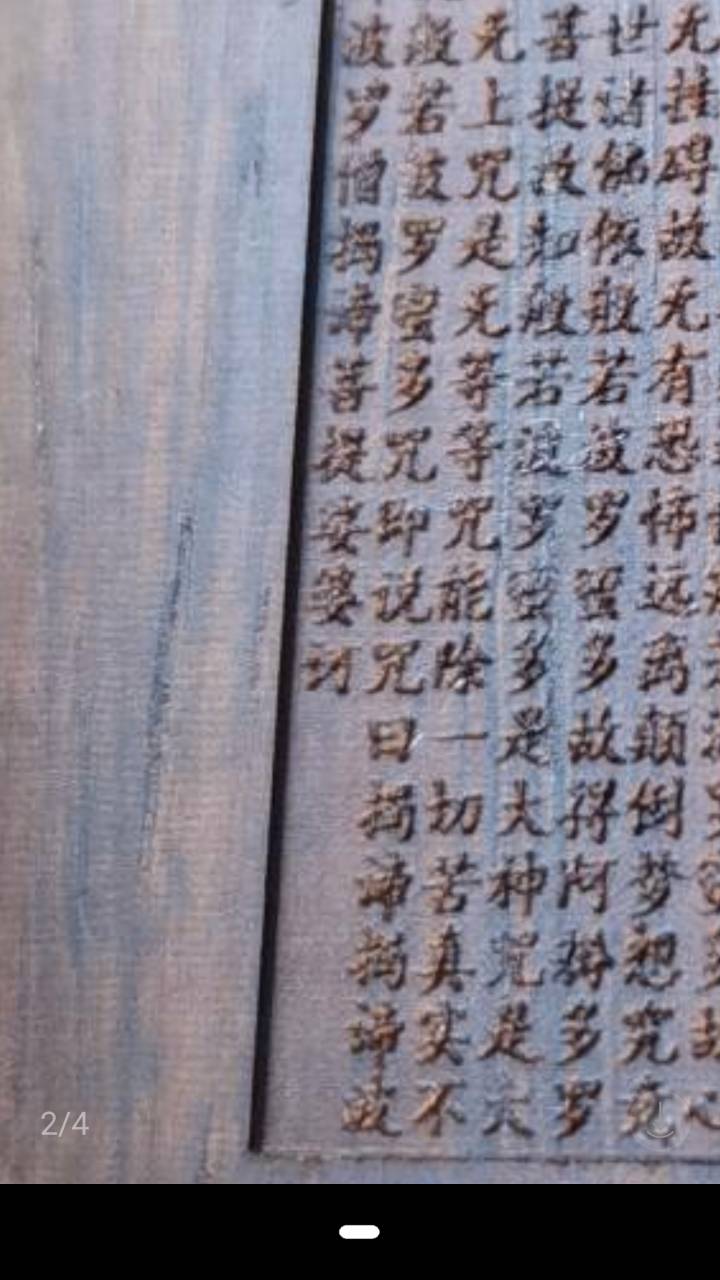 无挂碍故无有恐怖远离颠倒梦想究竟
世诸佛依般若波罗蜜多故得阿耨多罗
菩提故知般若波罗蜜多是大神咒是大
无上咒是无等等咒能除一切苦真实不
般若波罗蜜多咒即说咒曰揭谛揭谛波
波罗僧揭谛菩提娑婆诃
2/4